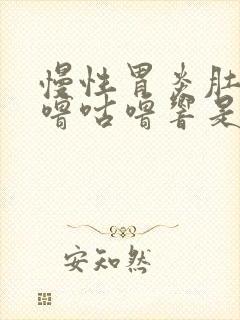 慢性胃炎肚
噜咕噜响是
安知然